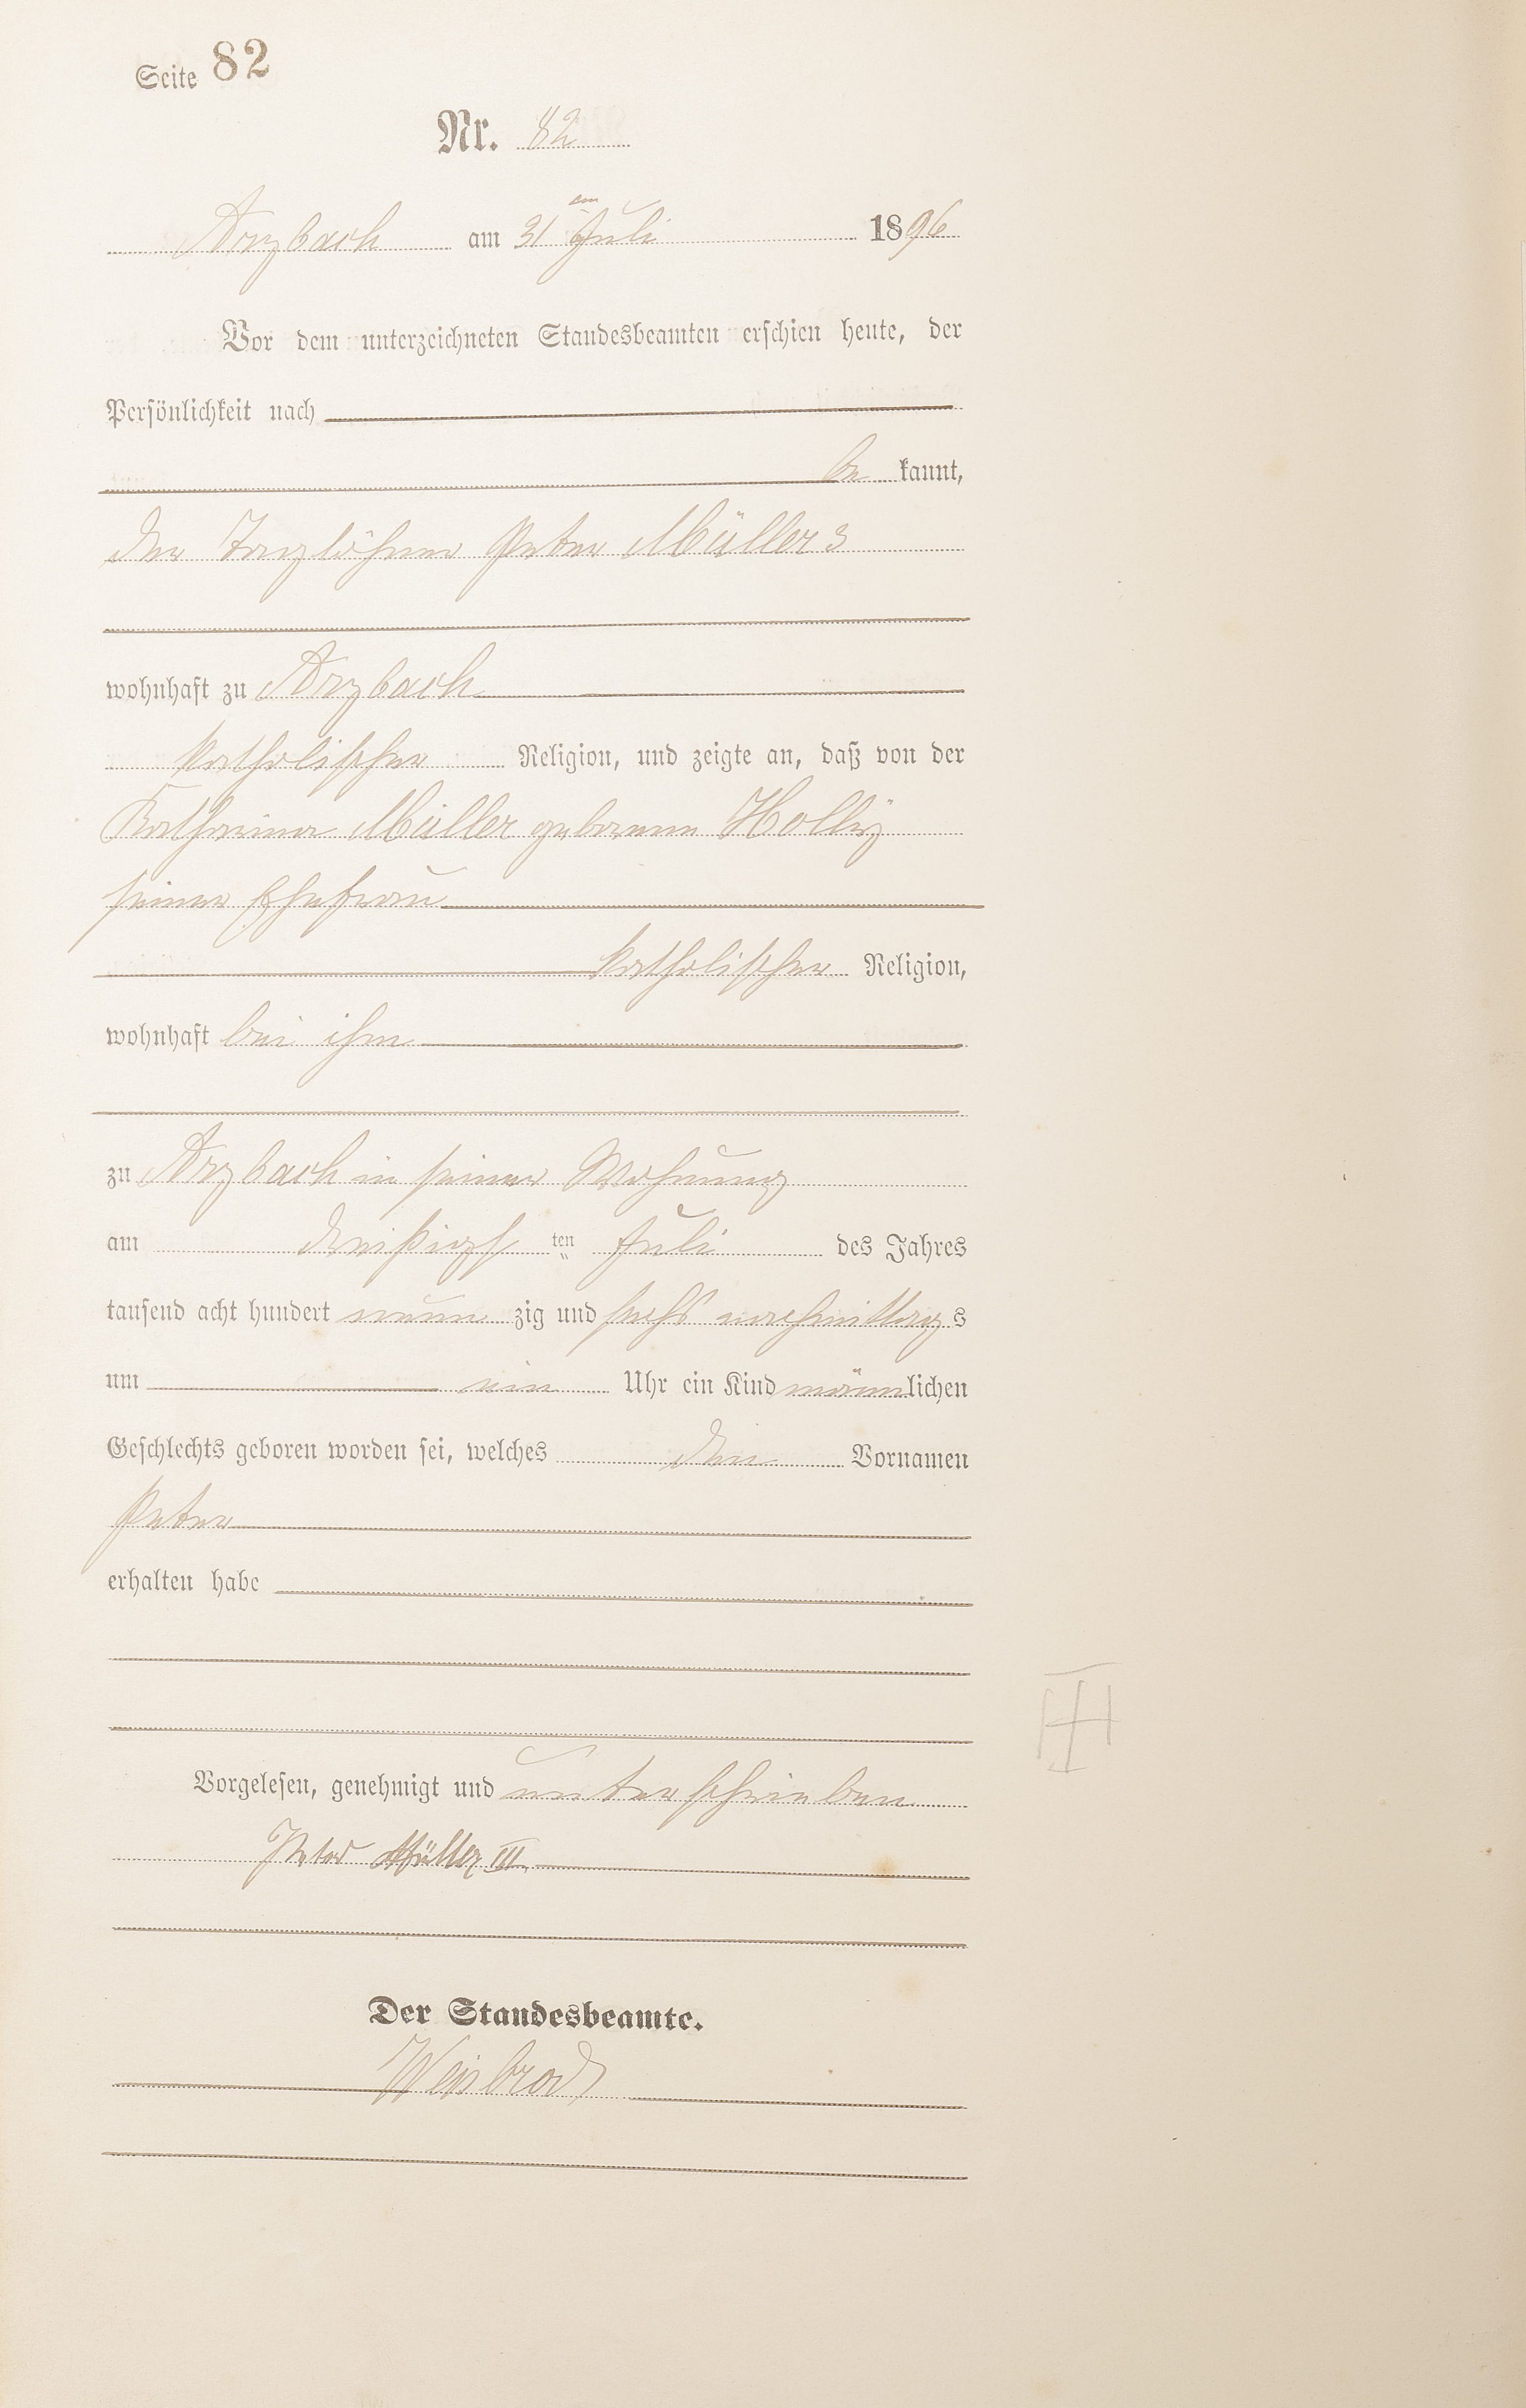 Seite 82
Nr. 82
Arzbach am 31 ten Juli 1896
Vor dem unterzeichneten Standesbeamten erschien heute, der
Persönlichkeit nach
be kannt,
der Taglöhner Peter Müller 3
wohnhaft zu Arzbach
katholischer Religion, und zeigte an, daß von der
Katharina Müller geborenen Hollig
seiner Ehefrau
katholischer Religion,
wohnhaft bei ihm
zu Arzbach in seiner Wohnung
am dreißigs ten Juli des Jahres
tausend acht hundert neun zig und sechs nachmittags
um ein Uhr ein Kind männlichen
Geschlechts geboren worden sei, welches den Vornamen
Peter
erhalten habe
Vorgelesen, genehmigt und unterschrieben
Peter Müller III
Der Standesbeamte.
Weisbrod